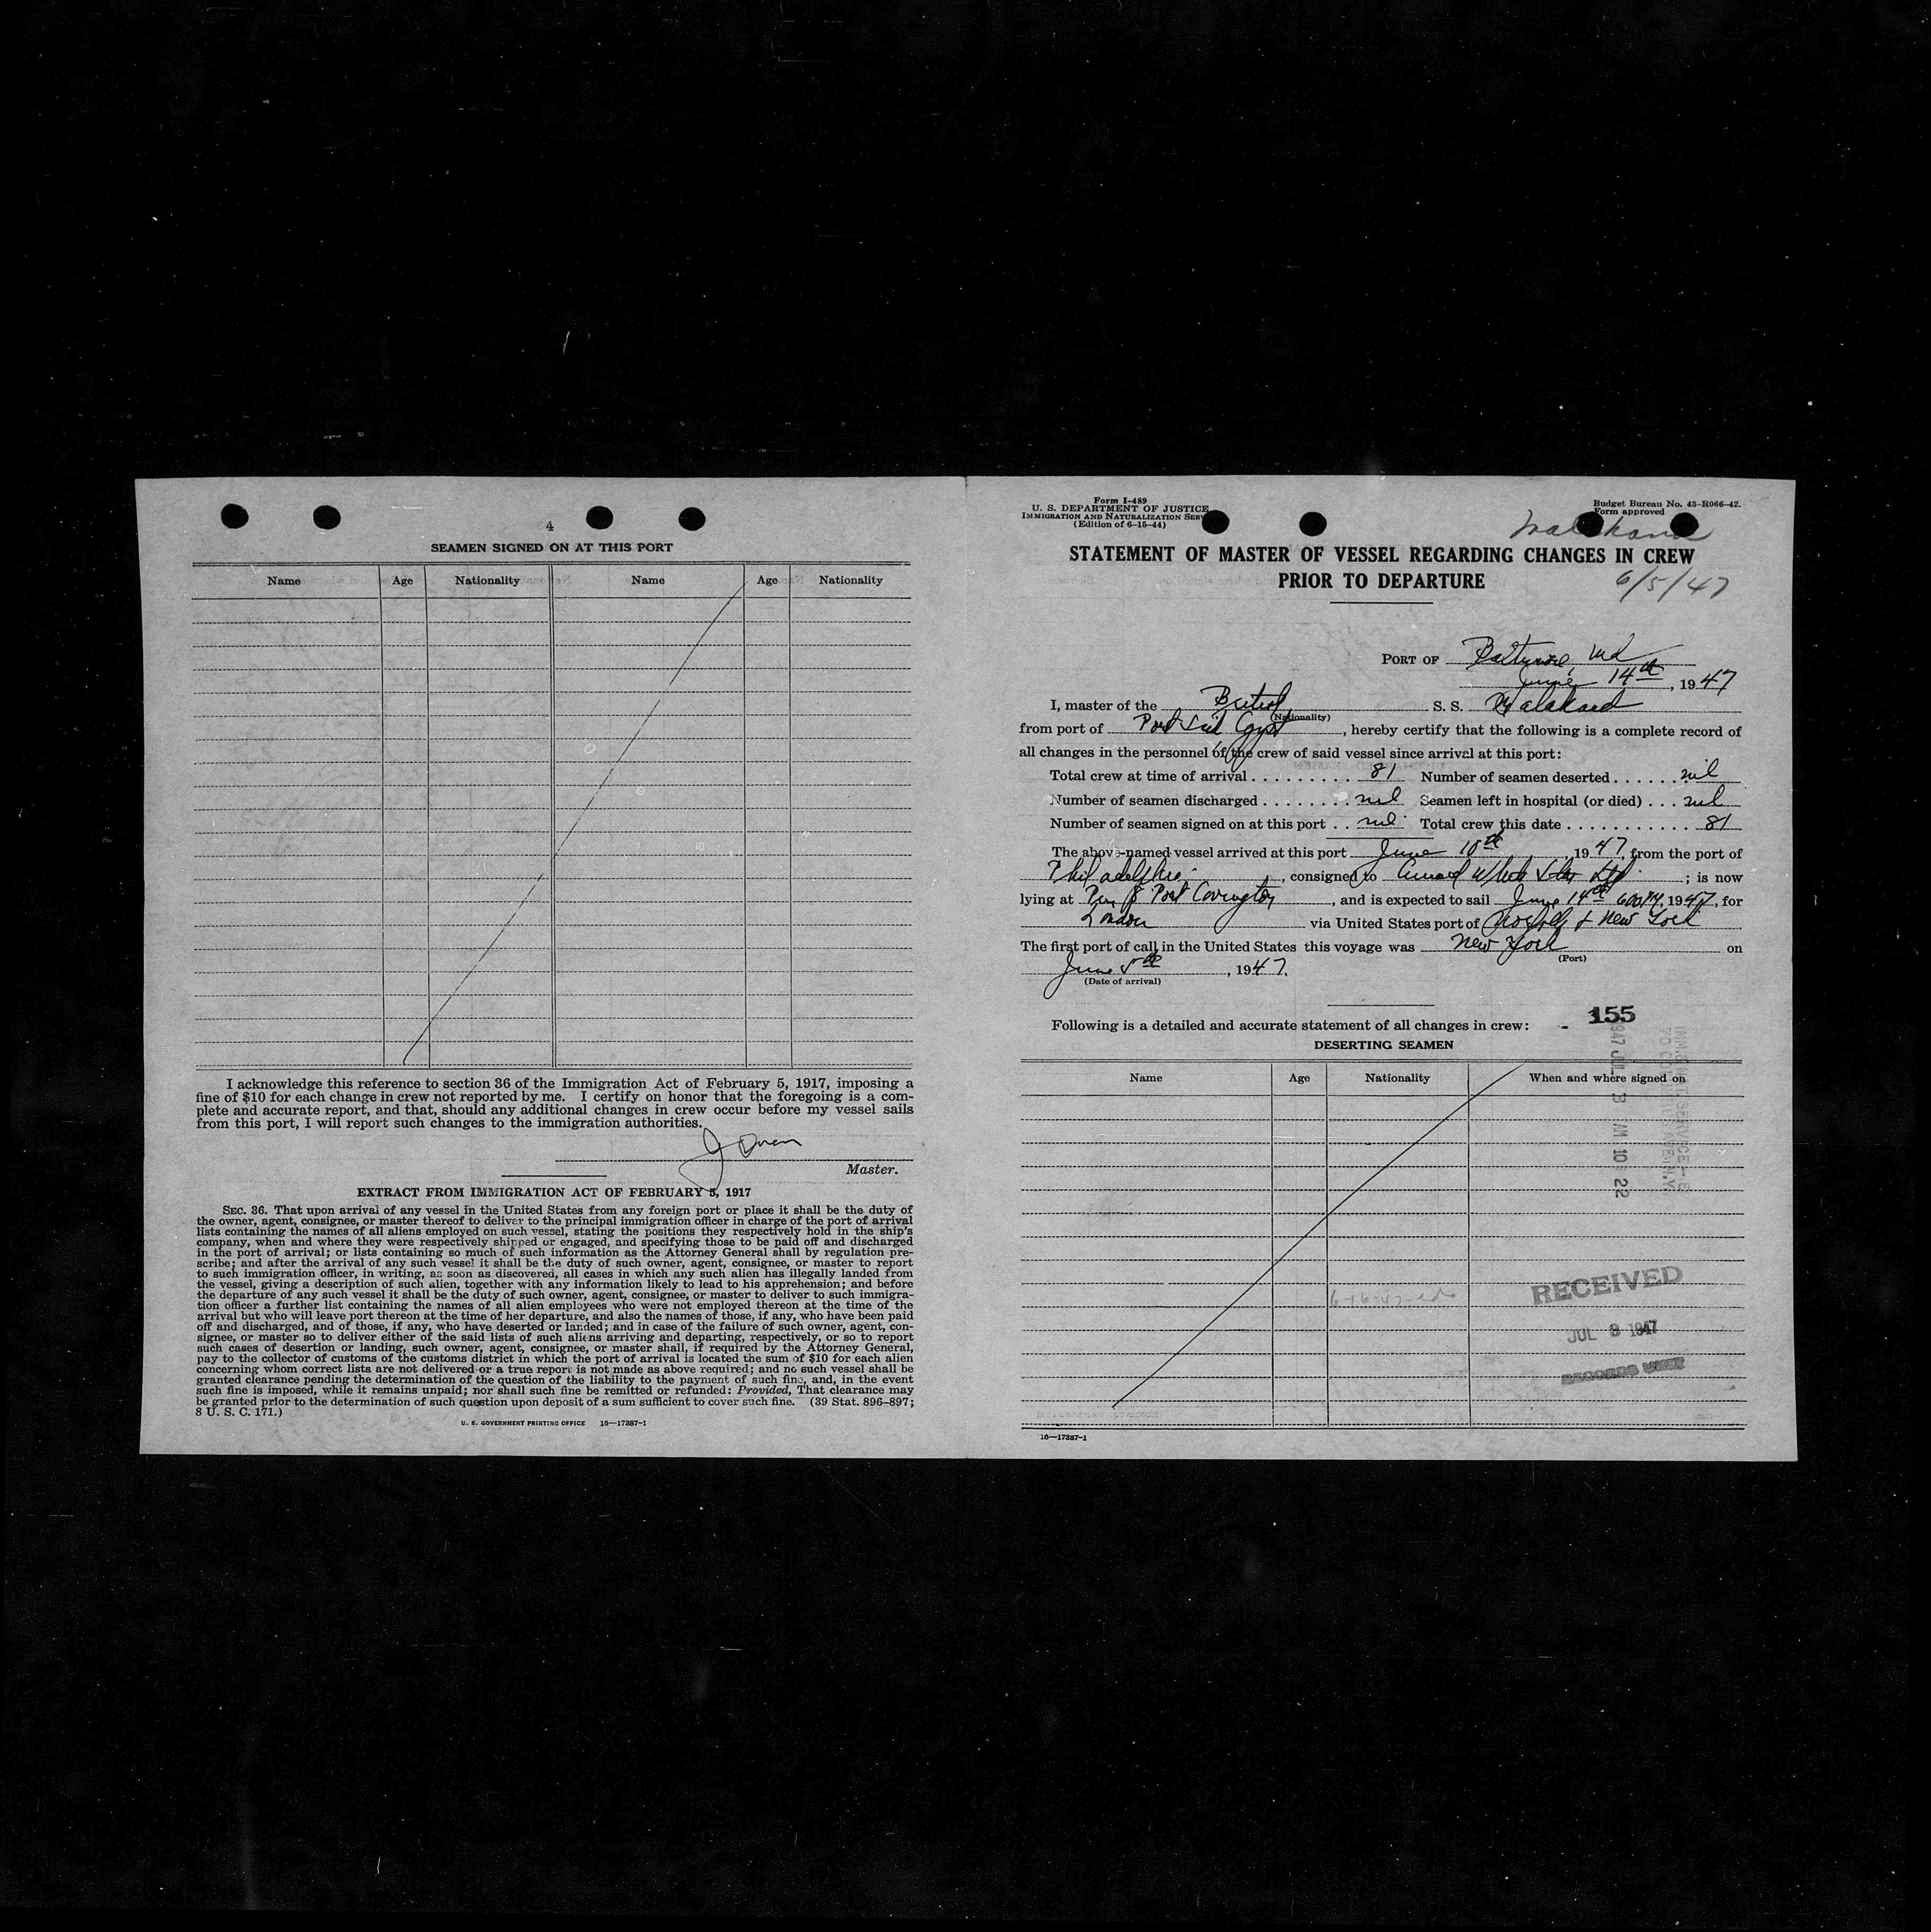 4
SEAMEN SIGNED ON AT THIS PORT
Name Age Nationality Name Age Nationality
I acknowledge this reference to section 36 of the Immigration Act of February 5, 1917, imposing a
fine of $10 for each change in crew not reported by me. I certify on honor that the foregoing is a com-
plete and accurate report, and that, should any additional changes in crew occur before my vessel sails
from this port, I will report such changes to the immigration authorities.
J Owen
Master.
EXTRACT FROM IMMIGRATION ACT OF FEBRUARY 5, 1917
SEC. 36. That upon arrival of any vessel in the United States from any foreign port or place it shall be the duty of
the owner, agent, consignee, or master thereof to deliver to the principal immigration officer in charge of the port of arrival
lists containing the names of all aliens employed on such vessel, stating the positions they respectively hold in the ship's
company, when and where they were respectively shipped or engaged, and specifying those to be paid off and discharged
in the port of arrival; or lists containing so much of such information as the Attorney General shall by regulation pre-
scribe; and after the arrival of any such vessel it shall be the duty of such owner, agent, consignee, or master to report
to such immigration officer, in writing, as soon as discovered, all cases in which any such alien has illegally landed from
the vessel, giving a description of such alien, together with any information likely to lead to his apprehension; and before
the departure of any such vessel it shall be the duty of such owner, agent, consignee, or master to deliver to such immigra-
tion officer a further list containing the names of all alien employees who were not employed thereon at the time of the
arrival but who will leave port thereon at the time of her departure, and also the names of those, if any, who have been paid
off and discharged, and of those, if any, who have deserted or landed; and in case of the failure of such owner, agent, con-
signee, or master so to deliver either of the said lists of such aliens arriving and departing, respectively, or so to report
such cases of desertion or landing, such owner, agent, consignee, or master shall, if required by the Attorney General,
pay to the collector of customs of the customs district in which the port of arrival is located the sum of $10 for each alien
concerning whom correct lists are not delivered or a true report is not made as above required; and no such vessel shall be
granted clearance pending the determination of the question of the liability to the payment of such fine, and, in the event
such fine is imposed, while it remains unpaid; nor shall such fine be remitted or refunded: Provided, That clearance may
be granted prior to the determination of such question upon deposit of a sum sufficient to cover such fine. (39 Stat. 896-897;
8 U. S. C. 171.)
U. S. GOVERNMENT PRINTING OFFICE 16—17387-1
Form I-489
U. S. DEPARTMENT OF JUSTICE
IMMIGRATION AND NATURALIZATION SERV
(Edition of 6-15-44)
Budget Bureau No. 43-R066-42.
Form approved
STATEMENT OF MASTER OF VESSEL REGARDING CHANGES IN CREW
PRIOR TO DEPARTURE
6/5/47
PORT OF Baltimore, Md
June 14th, 1947
I, master of the British S. S. Malakand
(Nationality)
from port of Port Said Egypt, hereby certify that the following is a complete record of
all changes in the personnel of the crew of said vessel since arrival at this port:
Total crew at time of arrival . . . . . . . . . . 81 Number of seamen deserted . . . . . . nil
Number of seamen discharged . . . . . . . . nil Seamen left in hospital (or died) . . . nil
Number of seamen signed on at this port . . nil Total crew this date . . . . . . . . . . . . 81
The above-named vessel arrived at this port June 10th, 1947, from the port of
Philadelphia, consigned to Cunard White Star Ltd; is now
lying at Pier 8 Port Covington, and is expected to sail June 14th 600PM, 1947, for
London via United States port of Norfolk & New York
The first port of call in the United States this voyage was New York on
(Port)
June 5th, 1947.
(Date of arrival)
Following is a detailed and accurate statement of all changes in crew: - 155
DESERTING SEAMEN
Name Age Nationality When and where signed on
1947 JUL 3 AM 10 22
RECEIVED
JUL 3 1947
16—17387-1